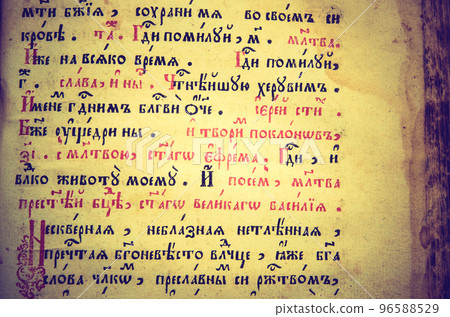 мт҃и бж҃їѧ, сохрани мѧ во своемъ си
кровѣ. та. Гд҇и помилуй, м҃. мл҃тва.
Иже на всѧко времѧ. Гд҇и помилуй,
г҃. слава, и нн҃ѣ. Чт҇нѣйшую херувимъ.
Именемъ гд҇нимъ благ҇ви ѻ҆ч҃е. іерей стихъ.
Бж҃е ѹщедри ны. и твори поклоновъ,
з҃і. с мл҃твою, ст҃агѡ єфрема. Гд҇и, и
вл҃ко животѹ моемѹ. И посемъ, мл҃тва
прест҃ѣй бц҃ѣ, ст҃агѡ великагѡ василїѧ.
Нескверная, неблазная нетлѣнная,
преч҇тая бг҃оневѣсто вл҃чце, ꙗже бг҃а
слова чл҃комъ, преславны си рж҇твомъ,
96588529